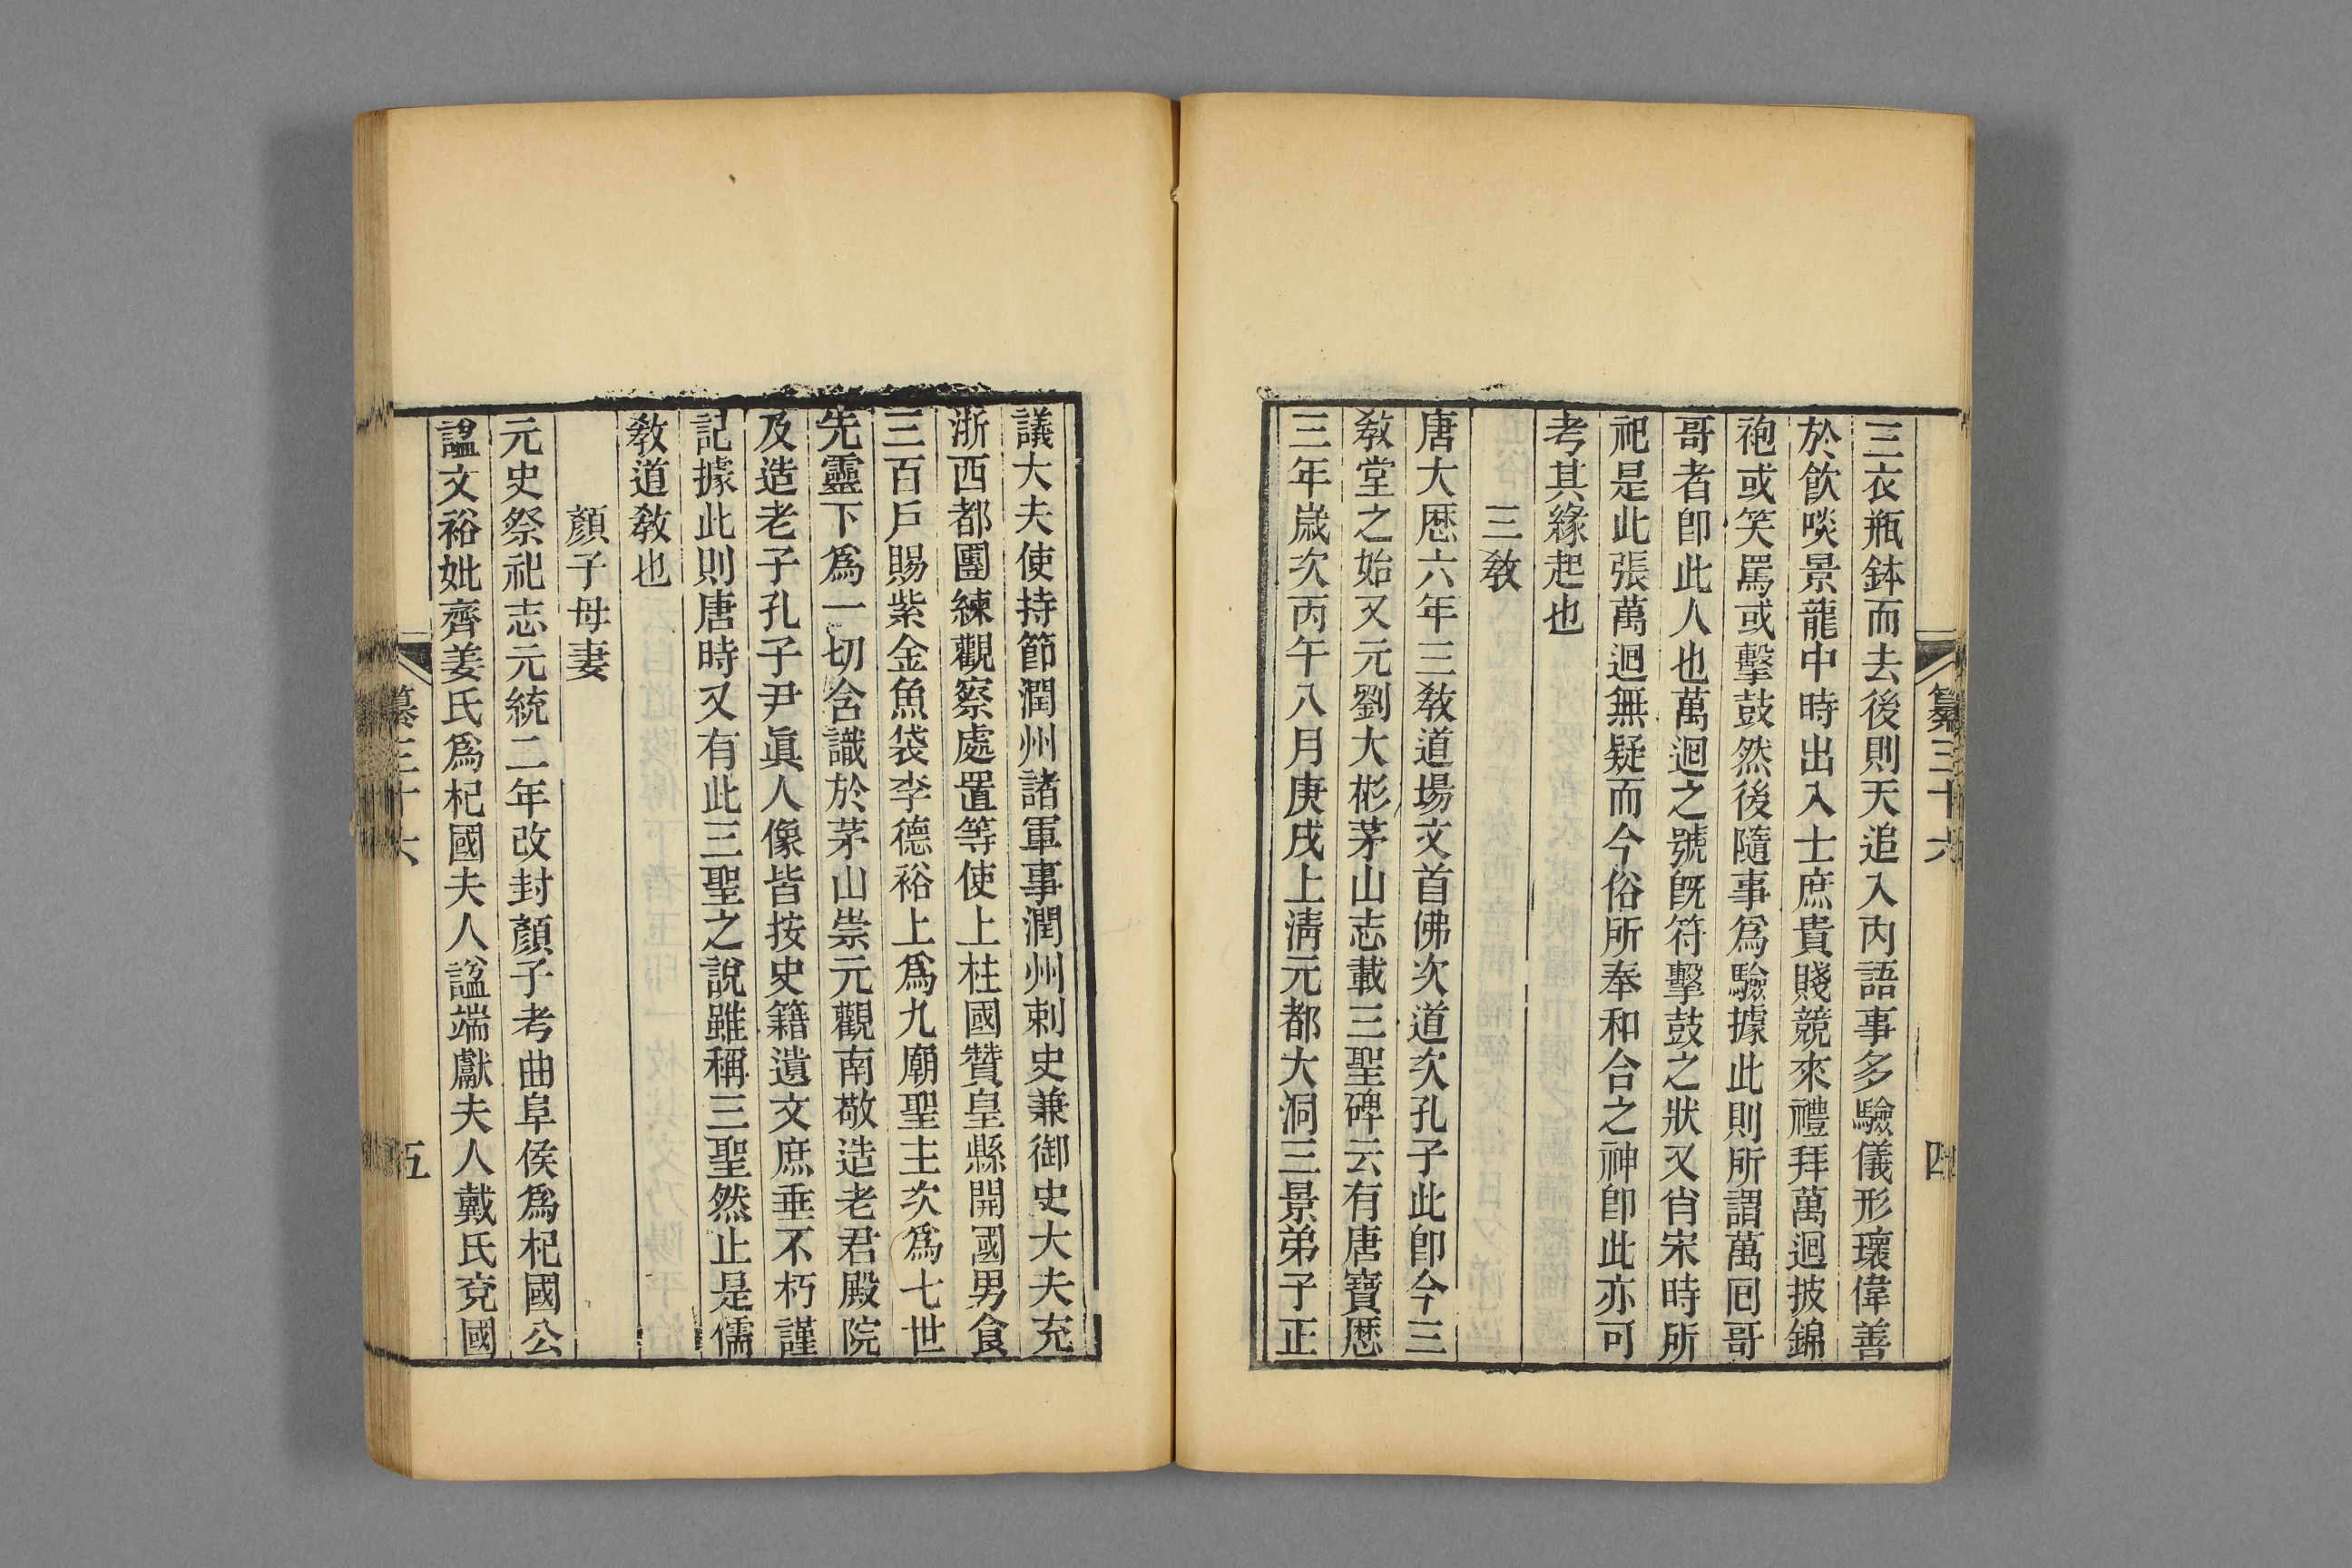 纂三十六
四
三衣瓶鉢而去後則天追入內語事多驗儀形瓌偉善
於飮啖景龍中時出入士庶貴賤競來禮拜萬迴披錦
袍或笑罵或擊鼓然後隨事爲驗據此則所謂萬囘哥
哥者卽此人也萬迴之號旣符擊鼓之狀又肖宋時所
祀是此張萬迴無疑而今俗所奉和合之神卽此亦可
考其緣起也
三敎
唐大歷六年三敎道場文首佛次道次孔子此卽今三
敎堂之始又元劉大彬茅山志載三聖碑云有唐寶歷
三年歲次丙午八月庚戌上淸元都大洞三景弟子正
議大夫使持節潤州諸軍事潤州剌史兼御史大夫充
浙西都團練觀察處置等使上柱國贊皇縣開國男食
三百戶賜紫金魚袋李德裕上爲九廟聖主次爲七世
先靈下爲一切含識於茅山崇元觀南敬造老君殿院
及造老子孔子尹眞人像皆按史籍遺文庶垂不朽謹
記據此則唐時又有此三聖之說雖稱三聖然止是儒
敎道敎也
顏子母妻
元史祭祀志元統二年改封顏子考曲阜侯爲杞國公
諡文裕妣齊姜氏爲杞國夫人諡端獻夫人戴氏兗國
纂三十六
五